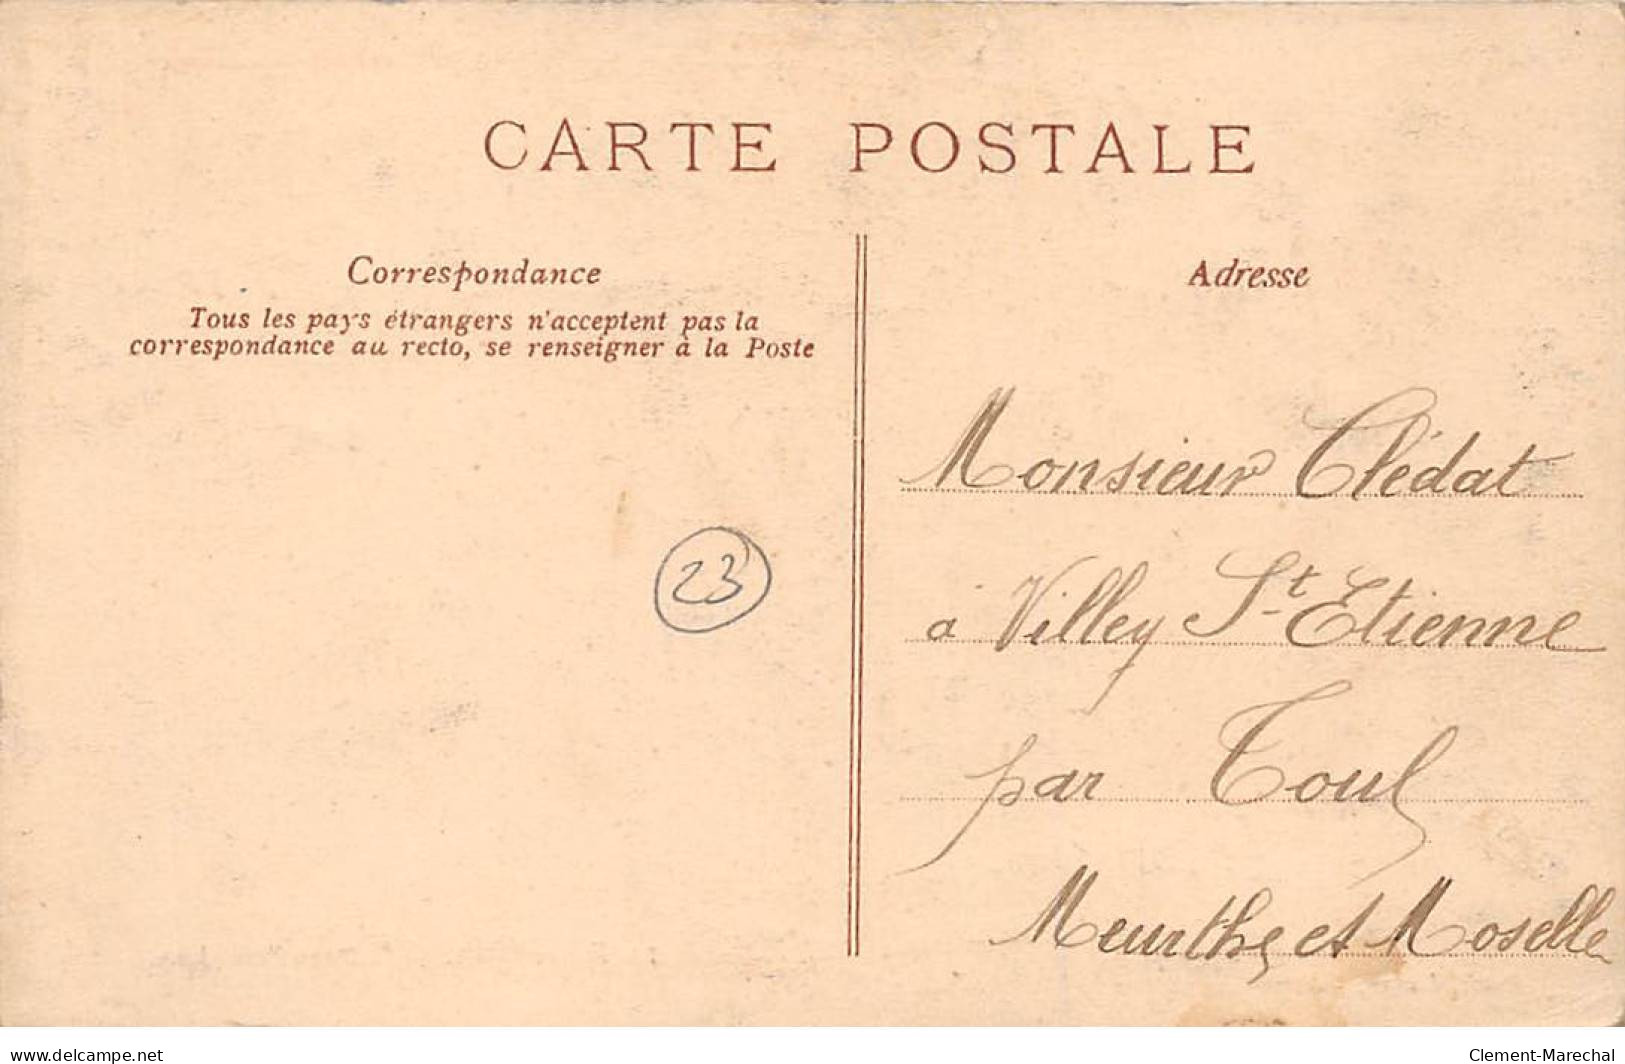 CARTE POSTALE
Correspondance
Tous les pays étrangers n'acceptent pas la
correspondance au recto, se renseigner à la Poste
23
Adresse
Monsieur Clédat
à Villey St-Etienne
par Toul
Meurthe et Moselle
www.delcampe.net
Clement-Marechal